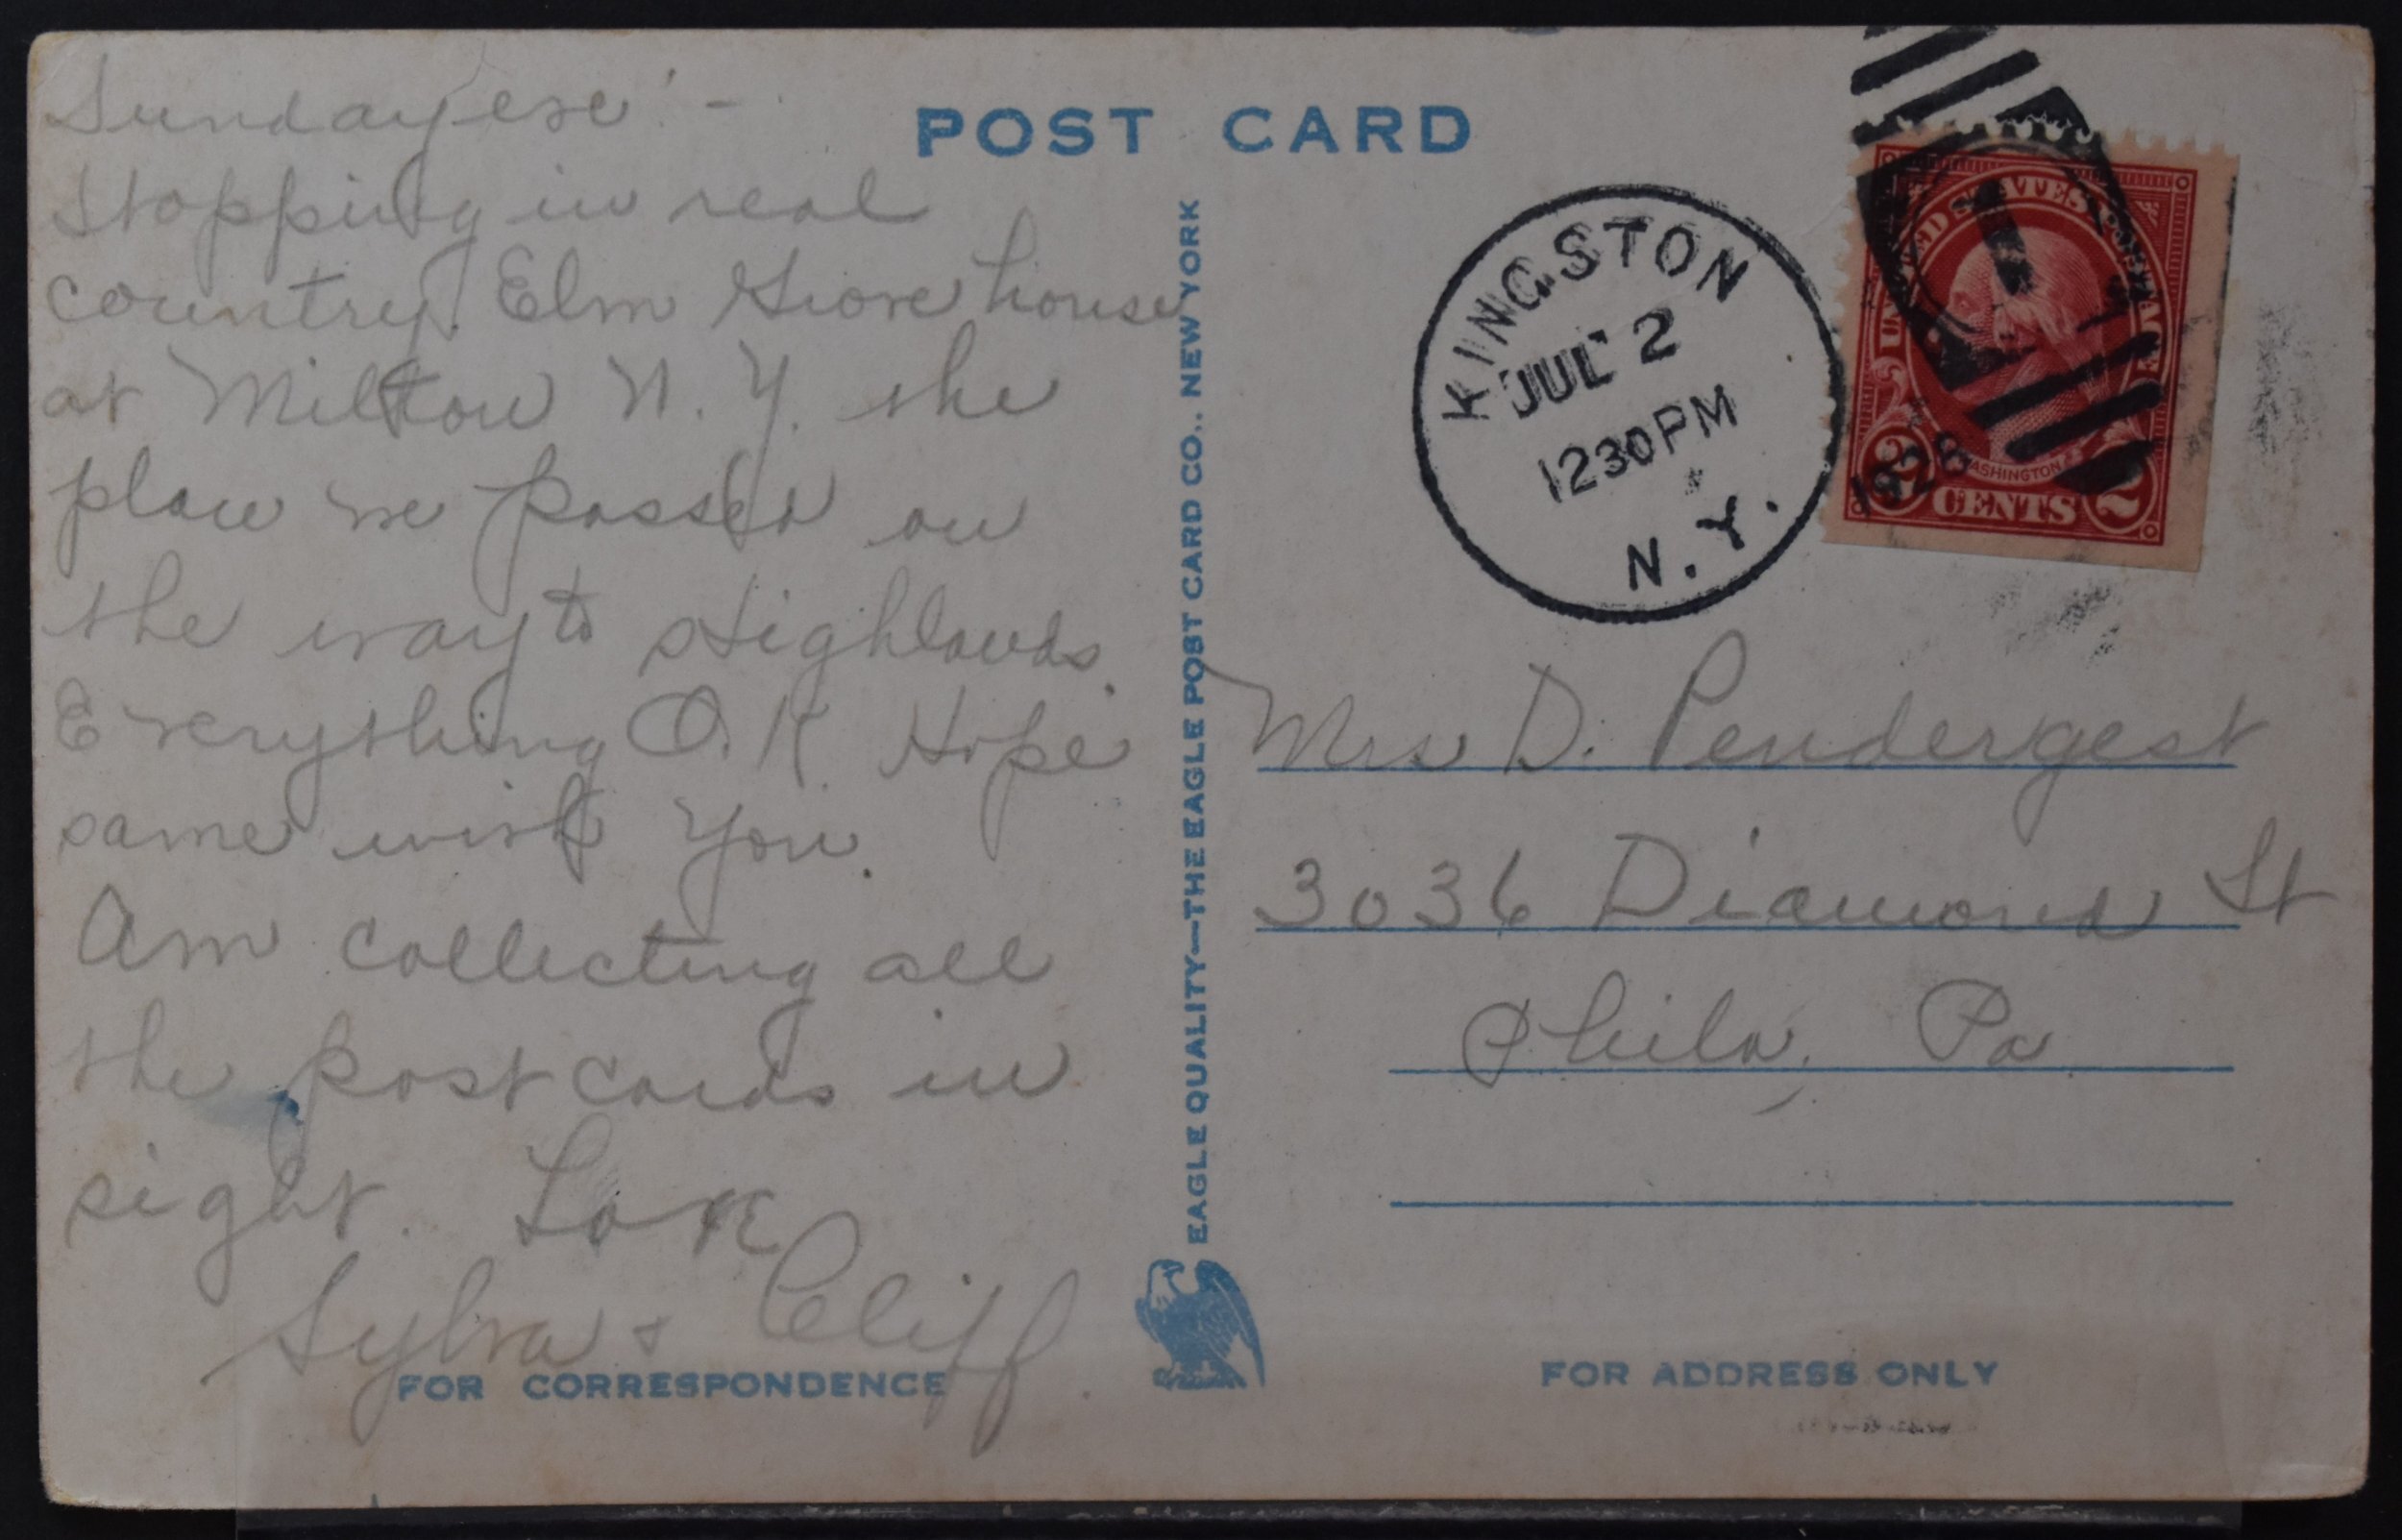 Sunday eve! -
Stopping in real
country. Elm Grove house
at Milton N. Y. the
place we passed on
the way to Highlands.
Everything O.K. Hope
same with you.
Am collecting all
the post cards in
sight. Love
Sylva & Cliff.
FOR CORRESPONDENCE
POST CARD
EAGLE QUALITY—THE EAGLE POST CARD CO., NEW YORK
KINGSTON
JUL 2
1230PM
N.Y.
1928
1
UNITED STATES POSTAGE
WASHINGTON
2 CENTS 2
Mrs D. Pendergest
3036 Diamond St
Phila, Pa
FOR ADDRESS ONLY